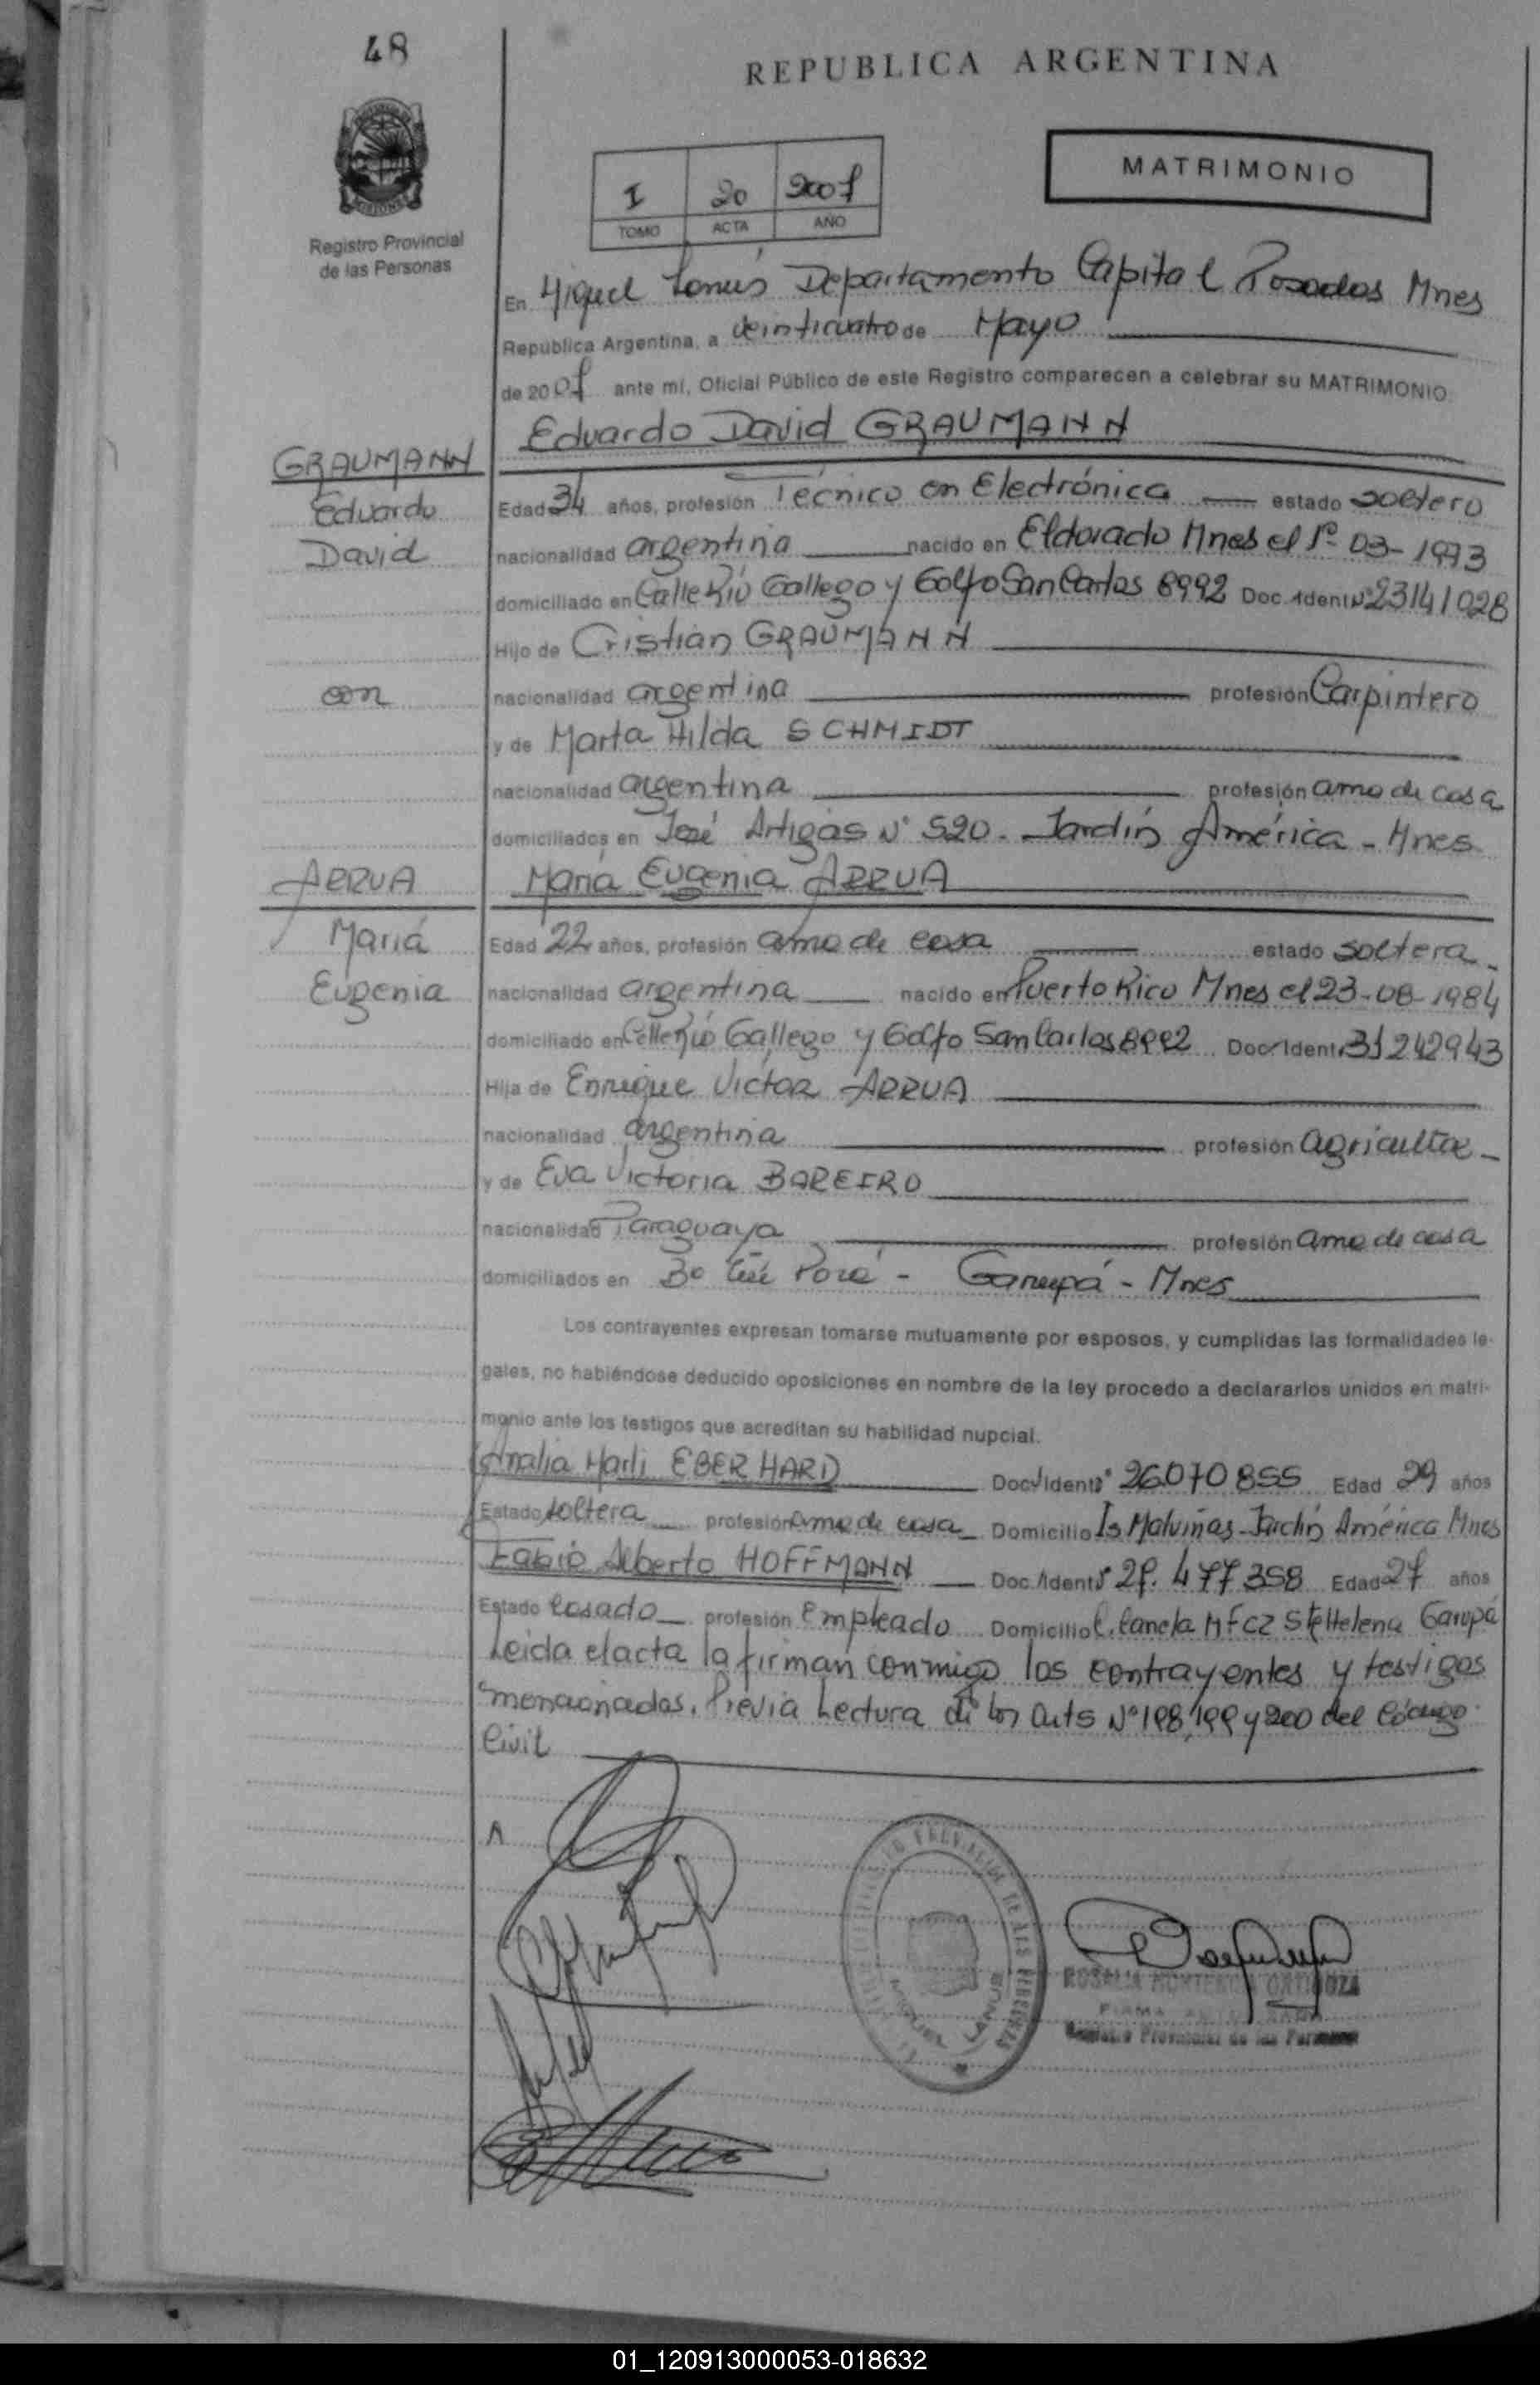 48
REPUBLICA ARGENTINA
MATRIMONIO
I 20 2007
TOMO ACTA AÑO
Registro Provincial
de las Personas
En Miguel Lanús Departamento Capital Posadas Mnes
República Argentina, a veinticuatro de Mayo
de 2007 ante mí, Oficial Público de este Registro comparecen a celebrar su MATRIMONIO
Eduardo David GRAUMANN
GRAUMANN
Eduardo
David
Edad 34 años, profesión Técnico en Electrónica estado soltero
nacionalidad argentina nacido en Eldorado Mnes el 1º-03-1973
domiciliado en Calle Río Gallego y Golfo San Carlos 8992 Doc. Ident. Nº 23141028
Hijo de Cristian GRAUMANN
con
nacionalidad argentina profesión Carpintero
y de Marta Hilda SCHMIDT
nacionalidad argentina profesión ama de casa
domiciliados en José Artigas Nº 520 - Jardín América - Mnes
ARRUA
María
Eugenia
María Eugenia ARRUA
Edad 22 años, profesión ama de casa estado soltera
nacionalidad argentina nacido en Puerto Rico Mnes el 23-08-1984
domiciliado en Calle Río Gallego y Golfo San Carlos 8992 Doc. Ident. 31242943
Hija de Enrique Victor ARRUA
nacionalidad argentina profesión agricultor
y de Eva Victoria BAREIRO
nacionalidad Paraguaya profesión ama de casa
domiciliados en Bº Porá - Garupá - Mnes
Los contrayentes expresan tomarse mutuamente por esposos, y cumplidas las formalidades le-
gales, no habiéndose deducido oposiciones en nombre de la ley procedo a declararlos unidos en matri-
monio ante los testigos que acreditan su habilidad nupcial.
Analia Marli EBERHARD Doc. Ident. Nº 26070855 Edad 29 años
Estado soltera profesión ama de casa Domicilio Is Malvinas - Jardín América Mnes
Fabio Alberto HOFFMANN Doc. Ident. Nº 27.477358 Edad 27 años
Estado casado profesión empleado Domicilio C. Canela Garupá
Leída el acta la firman conmigo los contrayentes y testigos
mencionados. Previa Lectura de los arts Nº 198, 199 y 200 del Código
Civil
MIGUEL LANUS
ROSALIA
Registro Provincial de las Personas
01_120913000053-018632